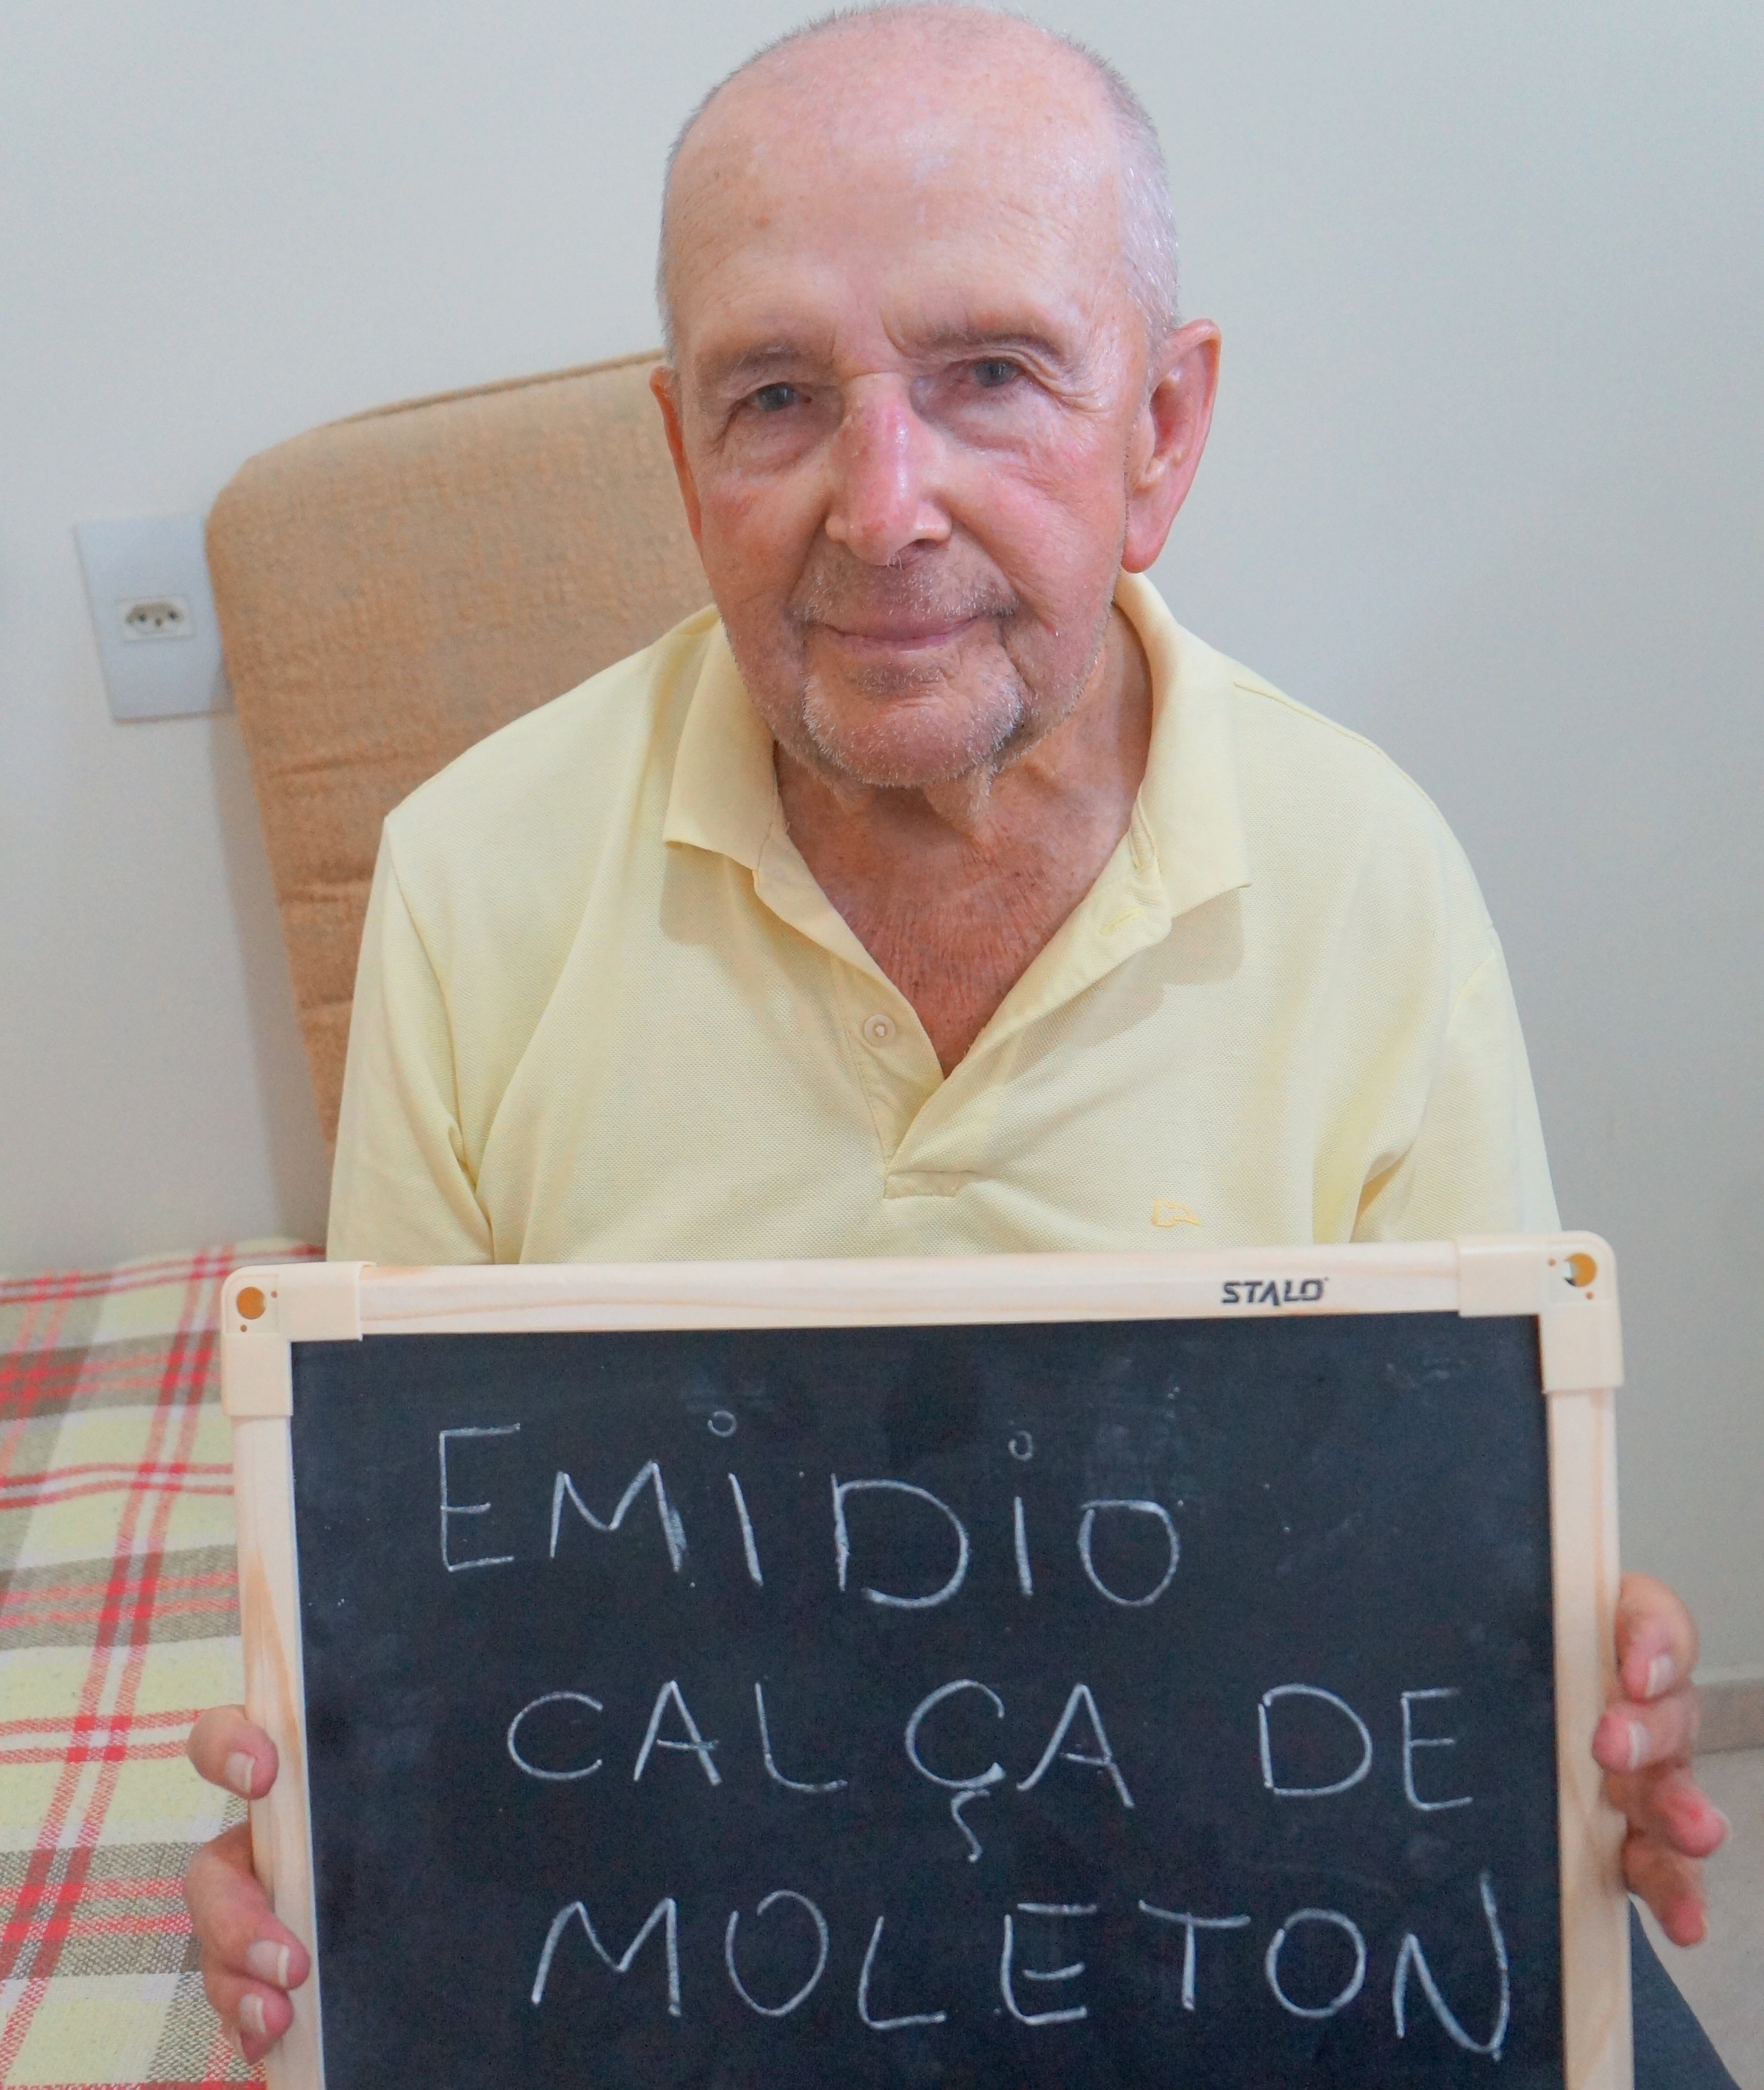 STALO
EMiDiO
CALÇA DE
MOLETON